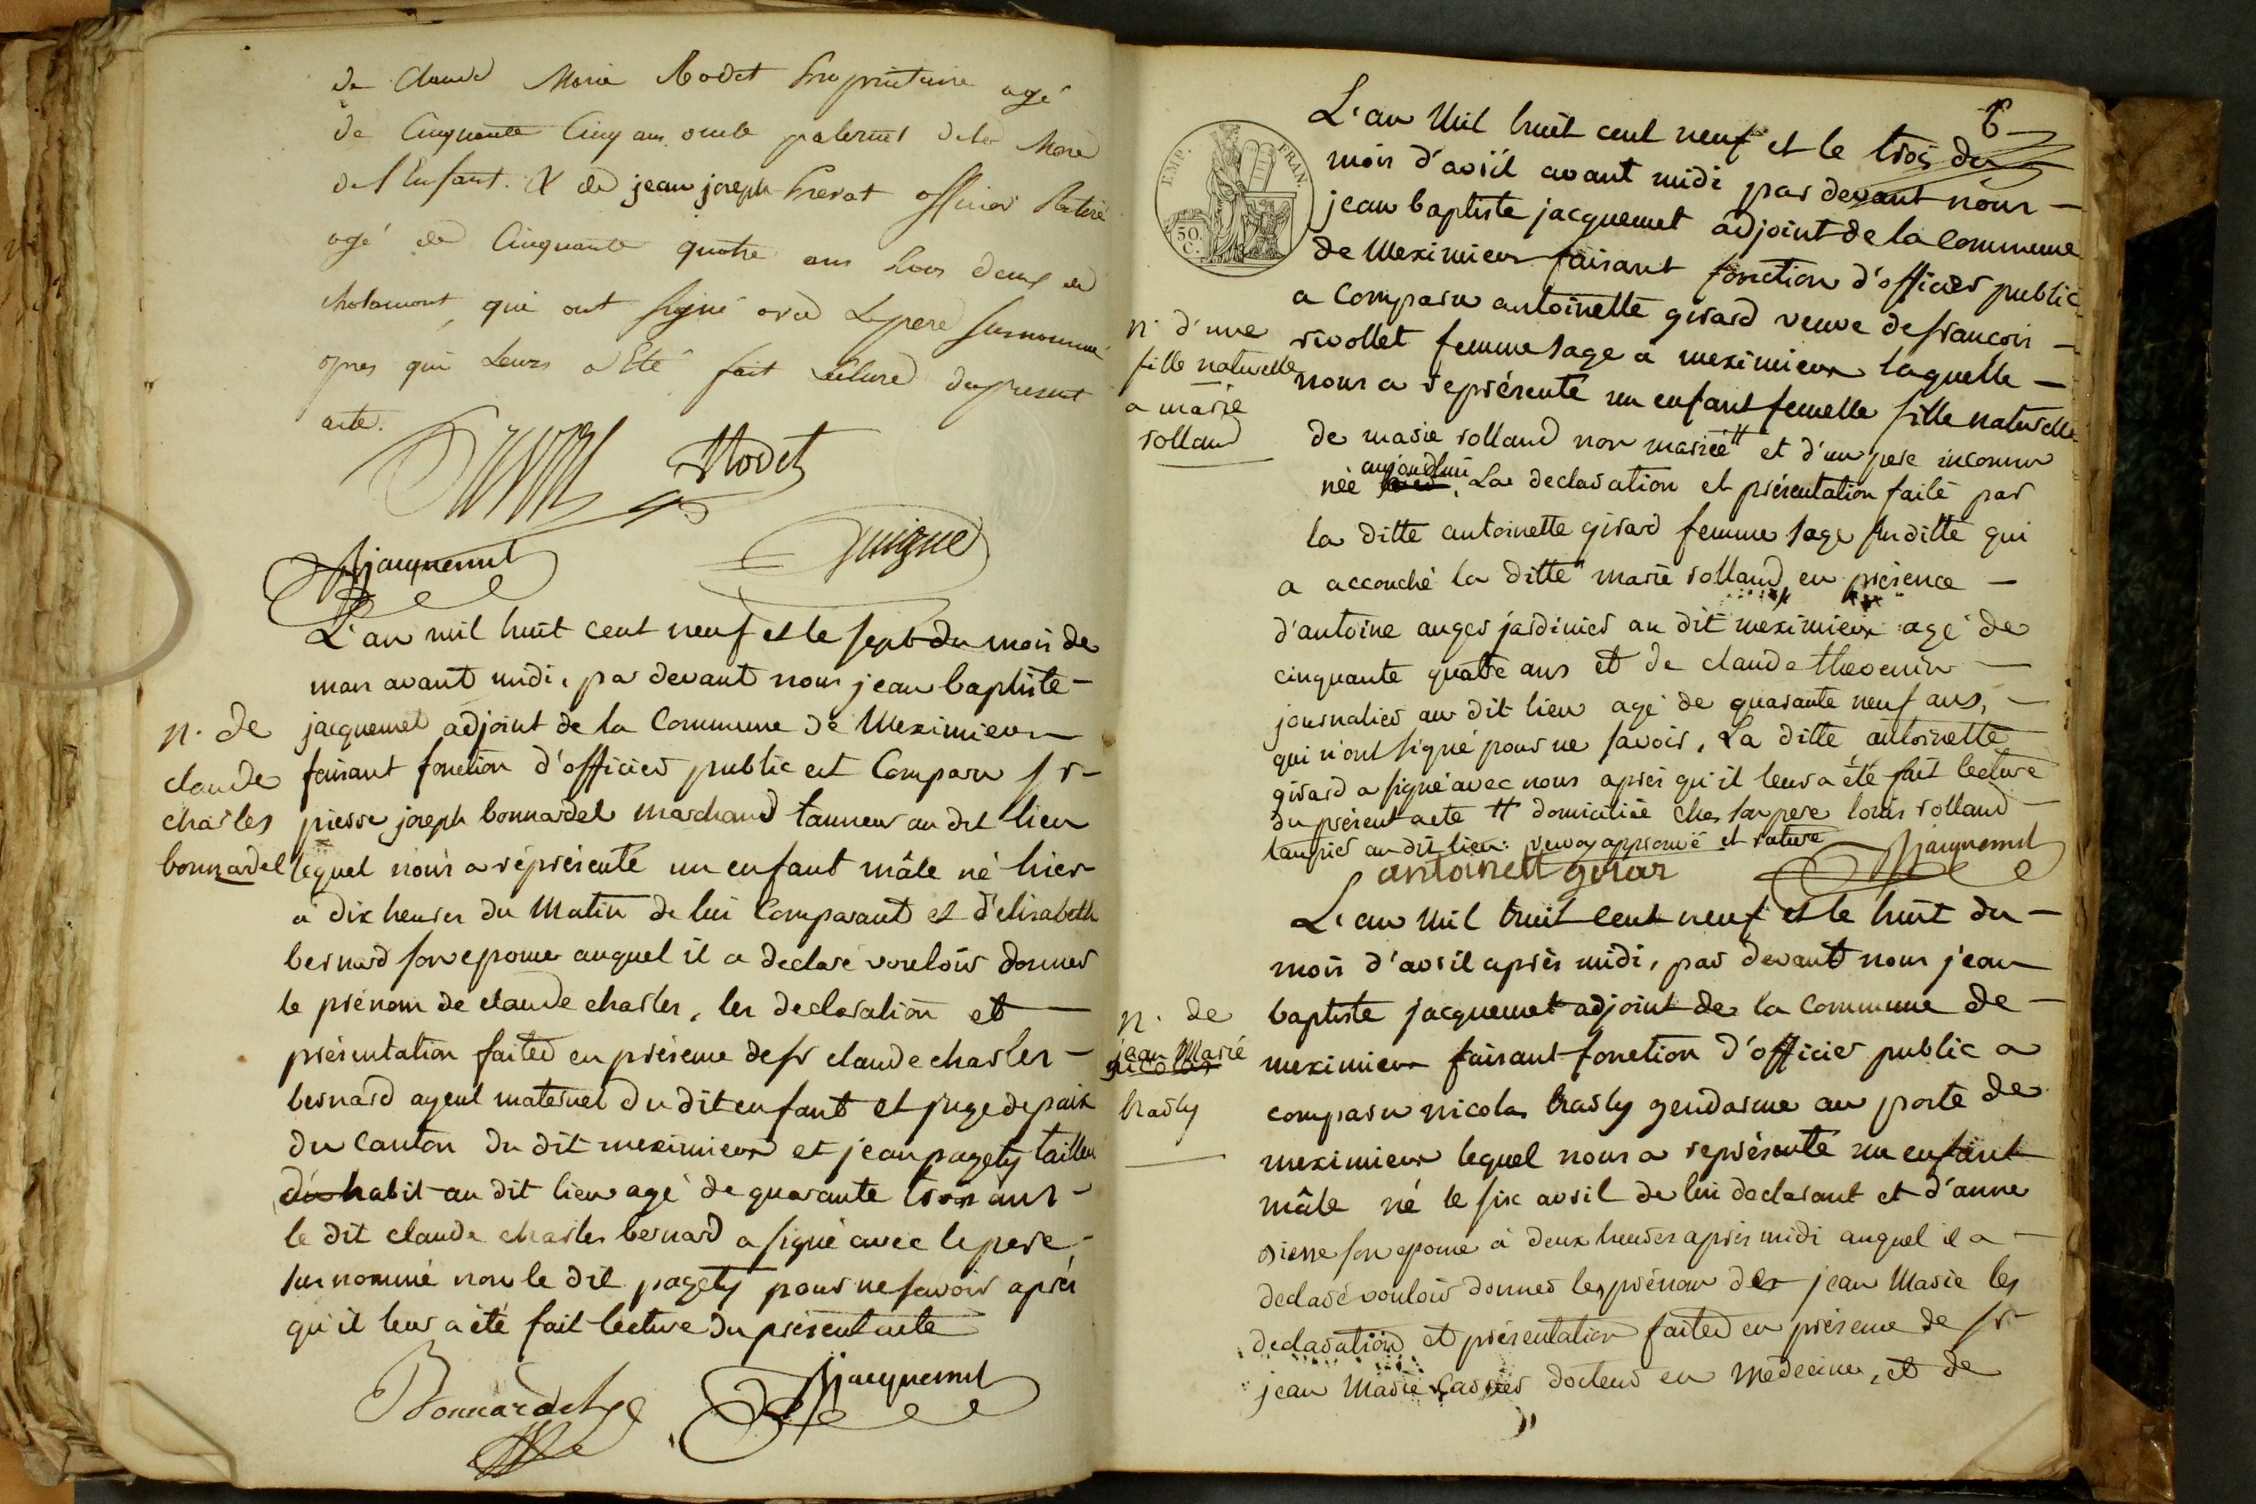 de Claude Marie Rodet Propriétaire agé
de Cinquante Cinq ans oncle paternel de la Mere
de l'Enfant. & de jean joseph officier Retiré
agé de Cinquante quatre ans tous deux de
chalamont, qui ont signé avec Le pere surnommé
apres qui Leurs a Eté fait Lecture du present
acte.
Rodet
jacquemet
Guigue
L'an mil huit cent neuf et le sept du mois de
mars avant midi, par devant nous jean baptiste
jacquemet adjoint de la Commune de Meximieux
faisant fonction d'officier public est Comparu sr
pierre joseph bonnardel marchand tanneur au dit lieu
lequel nous a réprésenté un enfant mâle né hier
à dix heures du Matin de lui Comparant et d'elisabeth
bernard son epouse auquel il a declaré vouloir donner
le prénom de claude charles, les declaration et
présentation faites en présence de sr claude charles
bernard ayeul maternel du dit enfant et juge de paix
du Canton du dit meximieux et jean pagety tailleur
d'habit au dit lieu agé de quarante trois ans
le dit claude charles bernard a signé avec le pere
surnommé non le dit pagety pour ne savoir aprés
qu'il leur a été fait lecture du présent acte
Bonnardel
jacquemet
n. de
claude
charles
bonnardel
6
EMP. FRAN.
50 C.
L'an Mil huit cent neuf et le trois du
mois d'avril avant midi par devant nous
jean baptiste jacquemet adjoint de la Commune
de Meximieux faisant fonction d'officier public
a Comparu antoinette girard veuve de francois
rivollet femme sage a meximieux laquelle
nous a représenté un enfant femelle fille naturelle
de marie rolland non mariée # et d'un pere inconnu
aujourdhui
née La declaration et présentation faite par
la ditte antoinette girard femme sage susditte qui
a accouché la ditte marie rolland en présence
d'antoine auger jardinier au dit meximieux agé de
cinquante quatre ans et de claude thevenin
journalier au dit lieu agé de quarante neuf ans,
qui n'ont signé pour ne savoir, La ditte antoinette
girard a signé avec nous aprés qu'il leur a été fait lecture
du présent acte # domiciliée chez son pere louis rolland
au dit lieu. renvoy approuvé et rature
antoinett girar
jacquemet
n. d'une
fille naturelle
a marie
rolland
L'an Mil huit Cent neuf et le huit du
mois d'avril aprés midi, par devant nous jean
baptiste jacquemet adjoint de la Commune de
meximieux faisant fonction d'officier public a
comparu nicolas brasly gendarme au poste de
meximieux lequel nous a représenté un enfant
mâle né le six avril de lui declarant et d'anne
son epouse à deux heures aprés midi auquel il a
declaré vouloir donner les prénom de jean Marie les
declaration et présentation faites en présence de sr
jean Marie docteur en Medecine, et de
n. de
jean Marie
nicolas
brasly